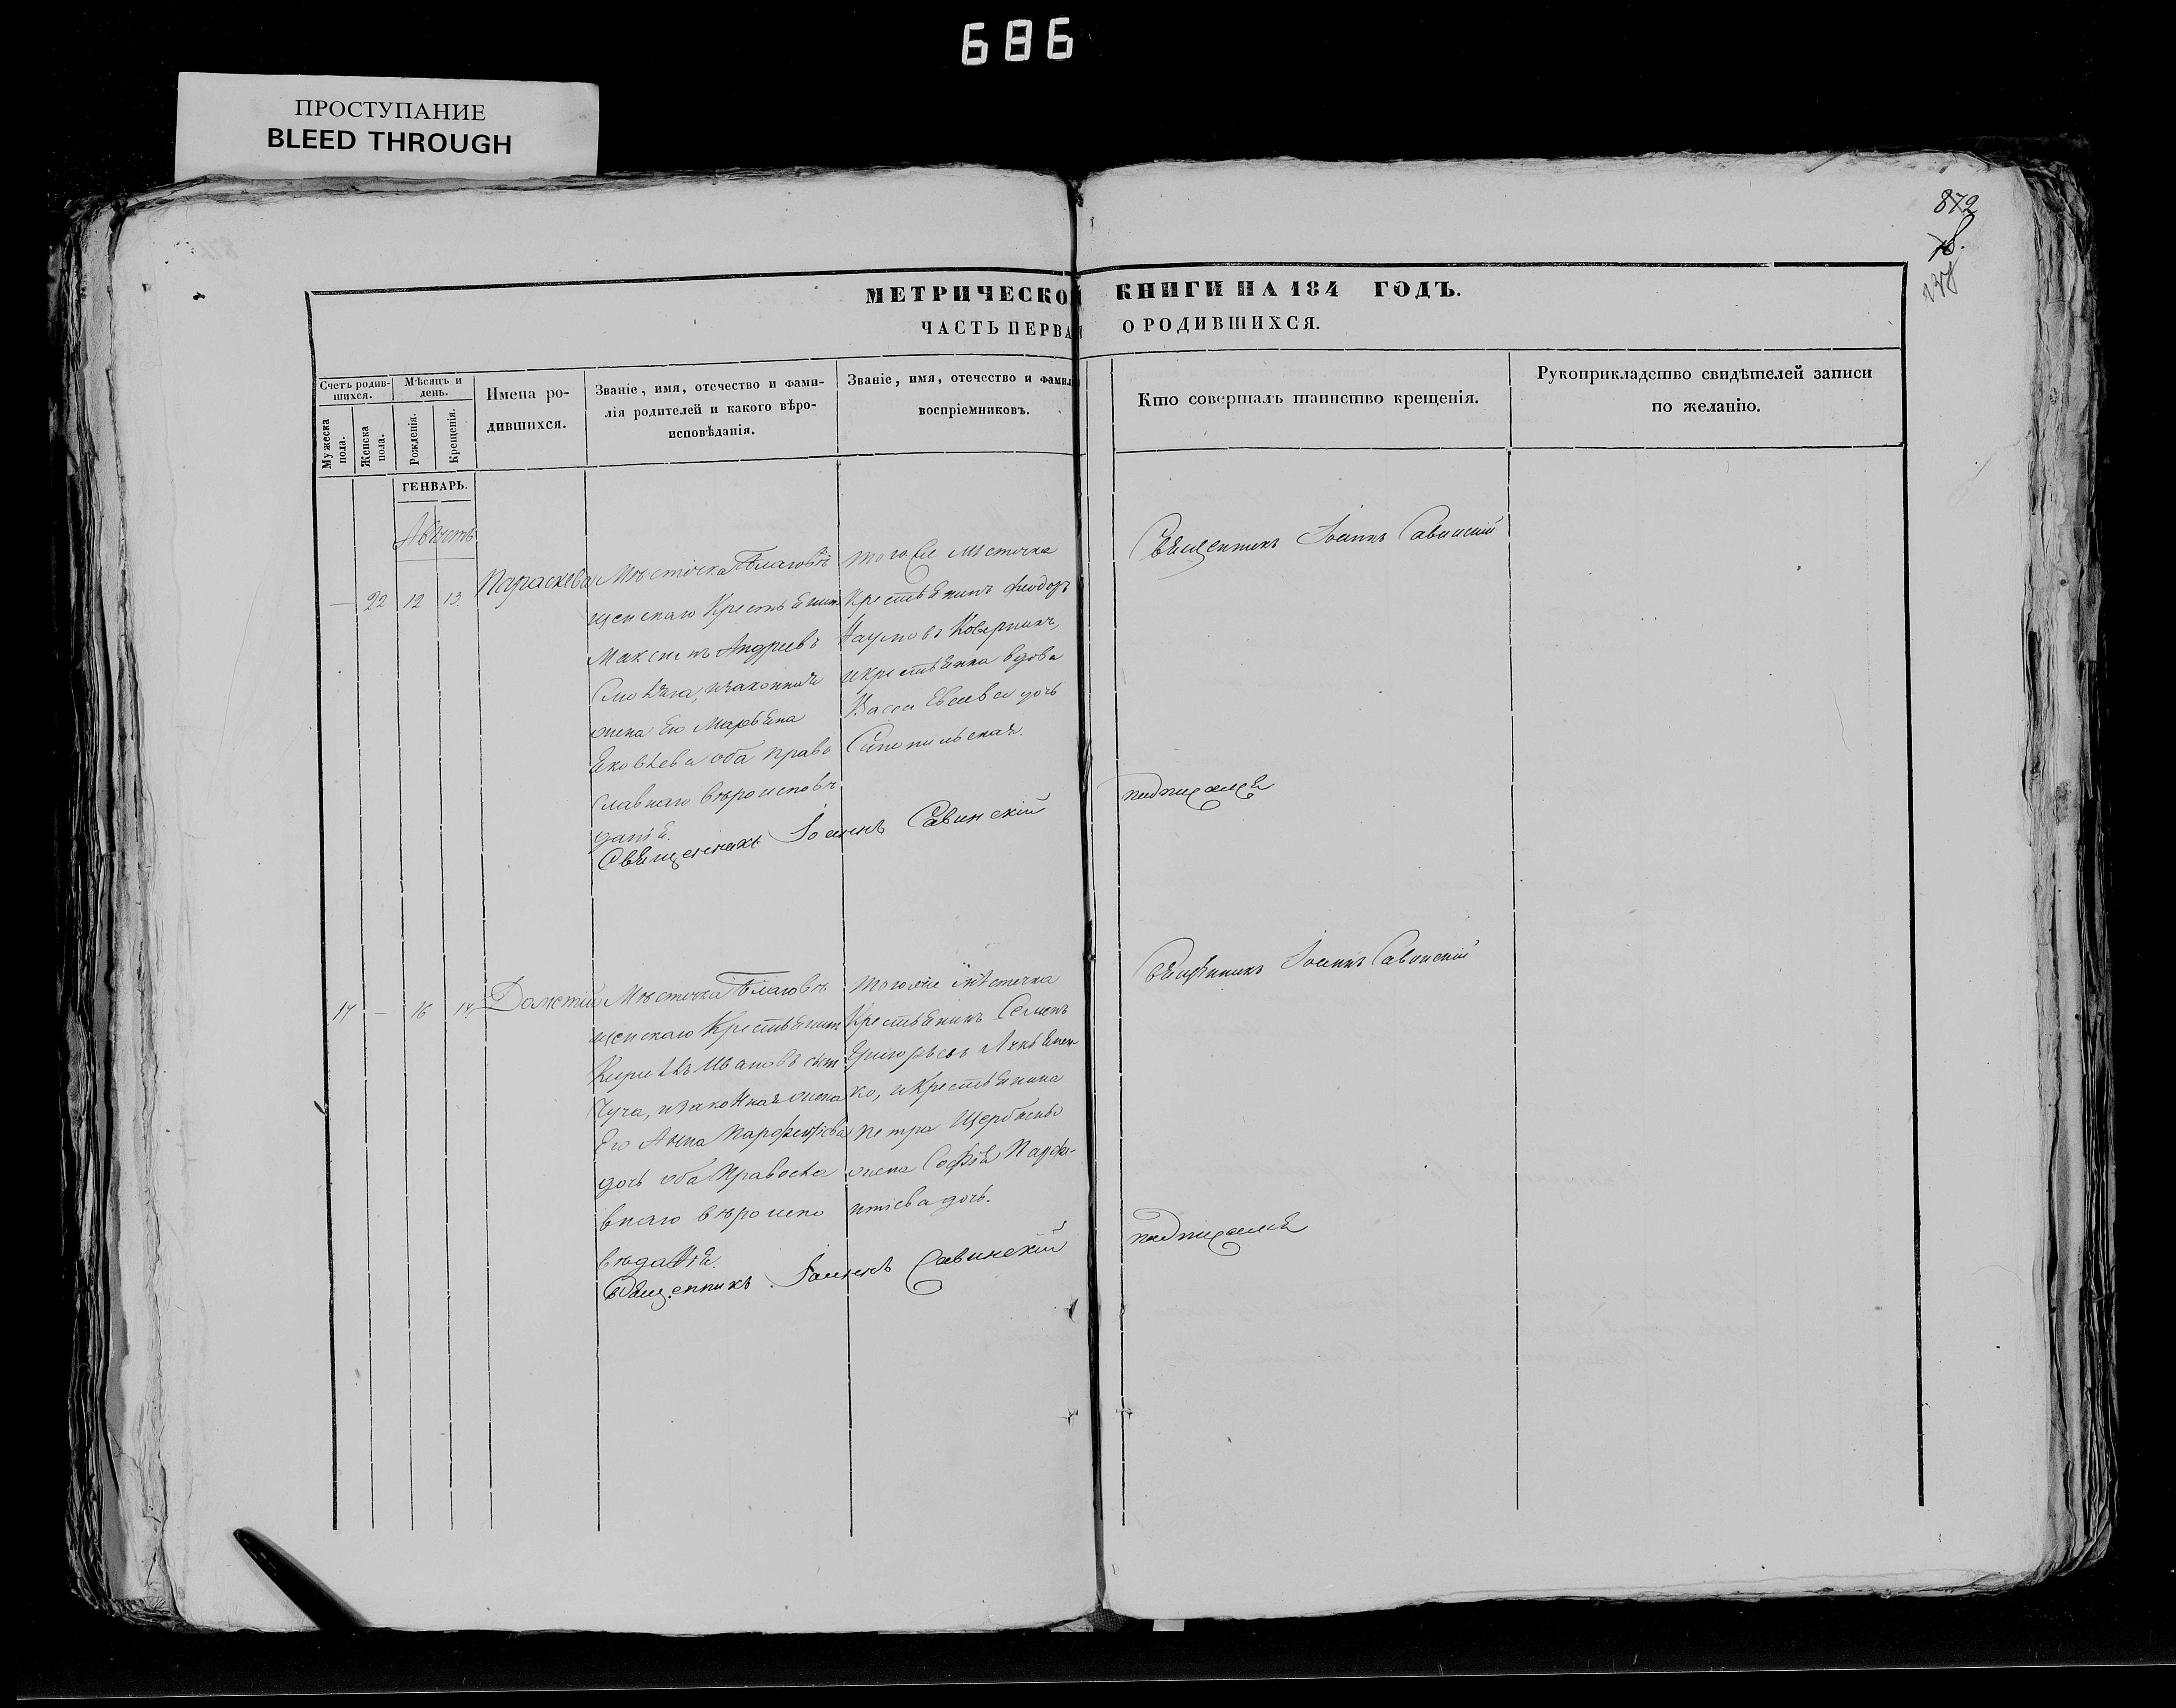 686
ПРОСТУПАНИЕ
BLEED THROUGH
872
МЕТРИЧЕСКОЙ КНИГИ НА 184 ГОДЪ.
ЧАСТЬ ПЕРВАЯ О РОДИВШИХСЯ.
Счетъ родив-
шихся.
Мужеска
пола.
Женска
пола.
Мѣсяцъ и
день.
Рожденія.
Крещенія.
Имена ро-
дившихся.
Званіе, имя, отечество и фами-
лія родителей и какого вѣро-
исповѣданія.
Званіе, имя, отечество и фамил
воспріемниковъ.
Кто совершалъ таинство крещенія.
Рукоприкладство свидѣтелей записи
по желанію.
ГЕНВАРЬ.
Августъ
— 22 12 13. Параскева
Мѣстечка Благовѣ
щенскаго Крестьянин
Максимъ Андреевъ
изаконная
жена Его Марьяна
Яковлева оба право
славнаго вѣроисповѣ
данія.
тогоже мѣстечка
Крестьянинъ Феодоръ
Наумовъ
икрестьянка вдова
Васса дочь
Священникъ Іоаннъ Савинскій
Священникъ Іоаннъ Савинскій
подписался
17 — 16 17.
Дометій
Мѣстечка Благовѣ
щенскаго Крестьянин
Кирилъ Ивановъ сын
изаконная жена
Его Анна Парфентіева
дочь оба Правосла
внаго вѣроиспо
вѣданія.
тогоже мѣстечка
Крестьянинъ Семенъ
Григорьевъ
ко, икрестьянина
Петра
жена Софія
нтіева дочь.
Священникъ Іоаннъ Савинскій
Священникъ Іоаннъ Савинскій
подписался